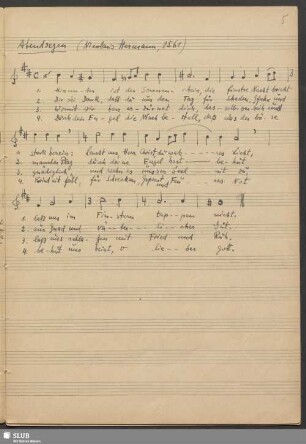 5
Abendsegen (Nicolaus Hermann, 1560)
1. Hinunter ist der Sonnenschein, die finstre Nacht bricht
2. Dir sei Dank, daß du uns den Tag für Schaden, G'fahr und
3. Womit wir
4. Durch dein Engel die Wach bestell, daß uns der böse
1. stark herein; leucht uns Herr Christ, du wahres Licht,
2. mancher Plag durch deine Engel hast behüt
3. gnädiglich und rechn es unsrer Seel nit zu,
4. Feind nit fäll, für Schrecken, G'spenst und Feuersnot
1. laß uns im Finstern tappen nicht.
2. aus Gnad und väterlicher Güt.
3. laß uns schlafen mit Fried und Ruh.
4. behüt uns heint, o lieber Gott.
SLUB